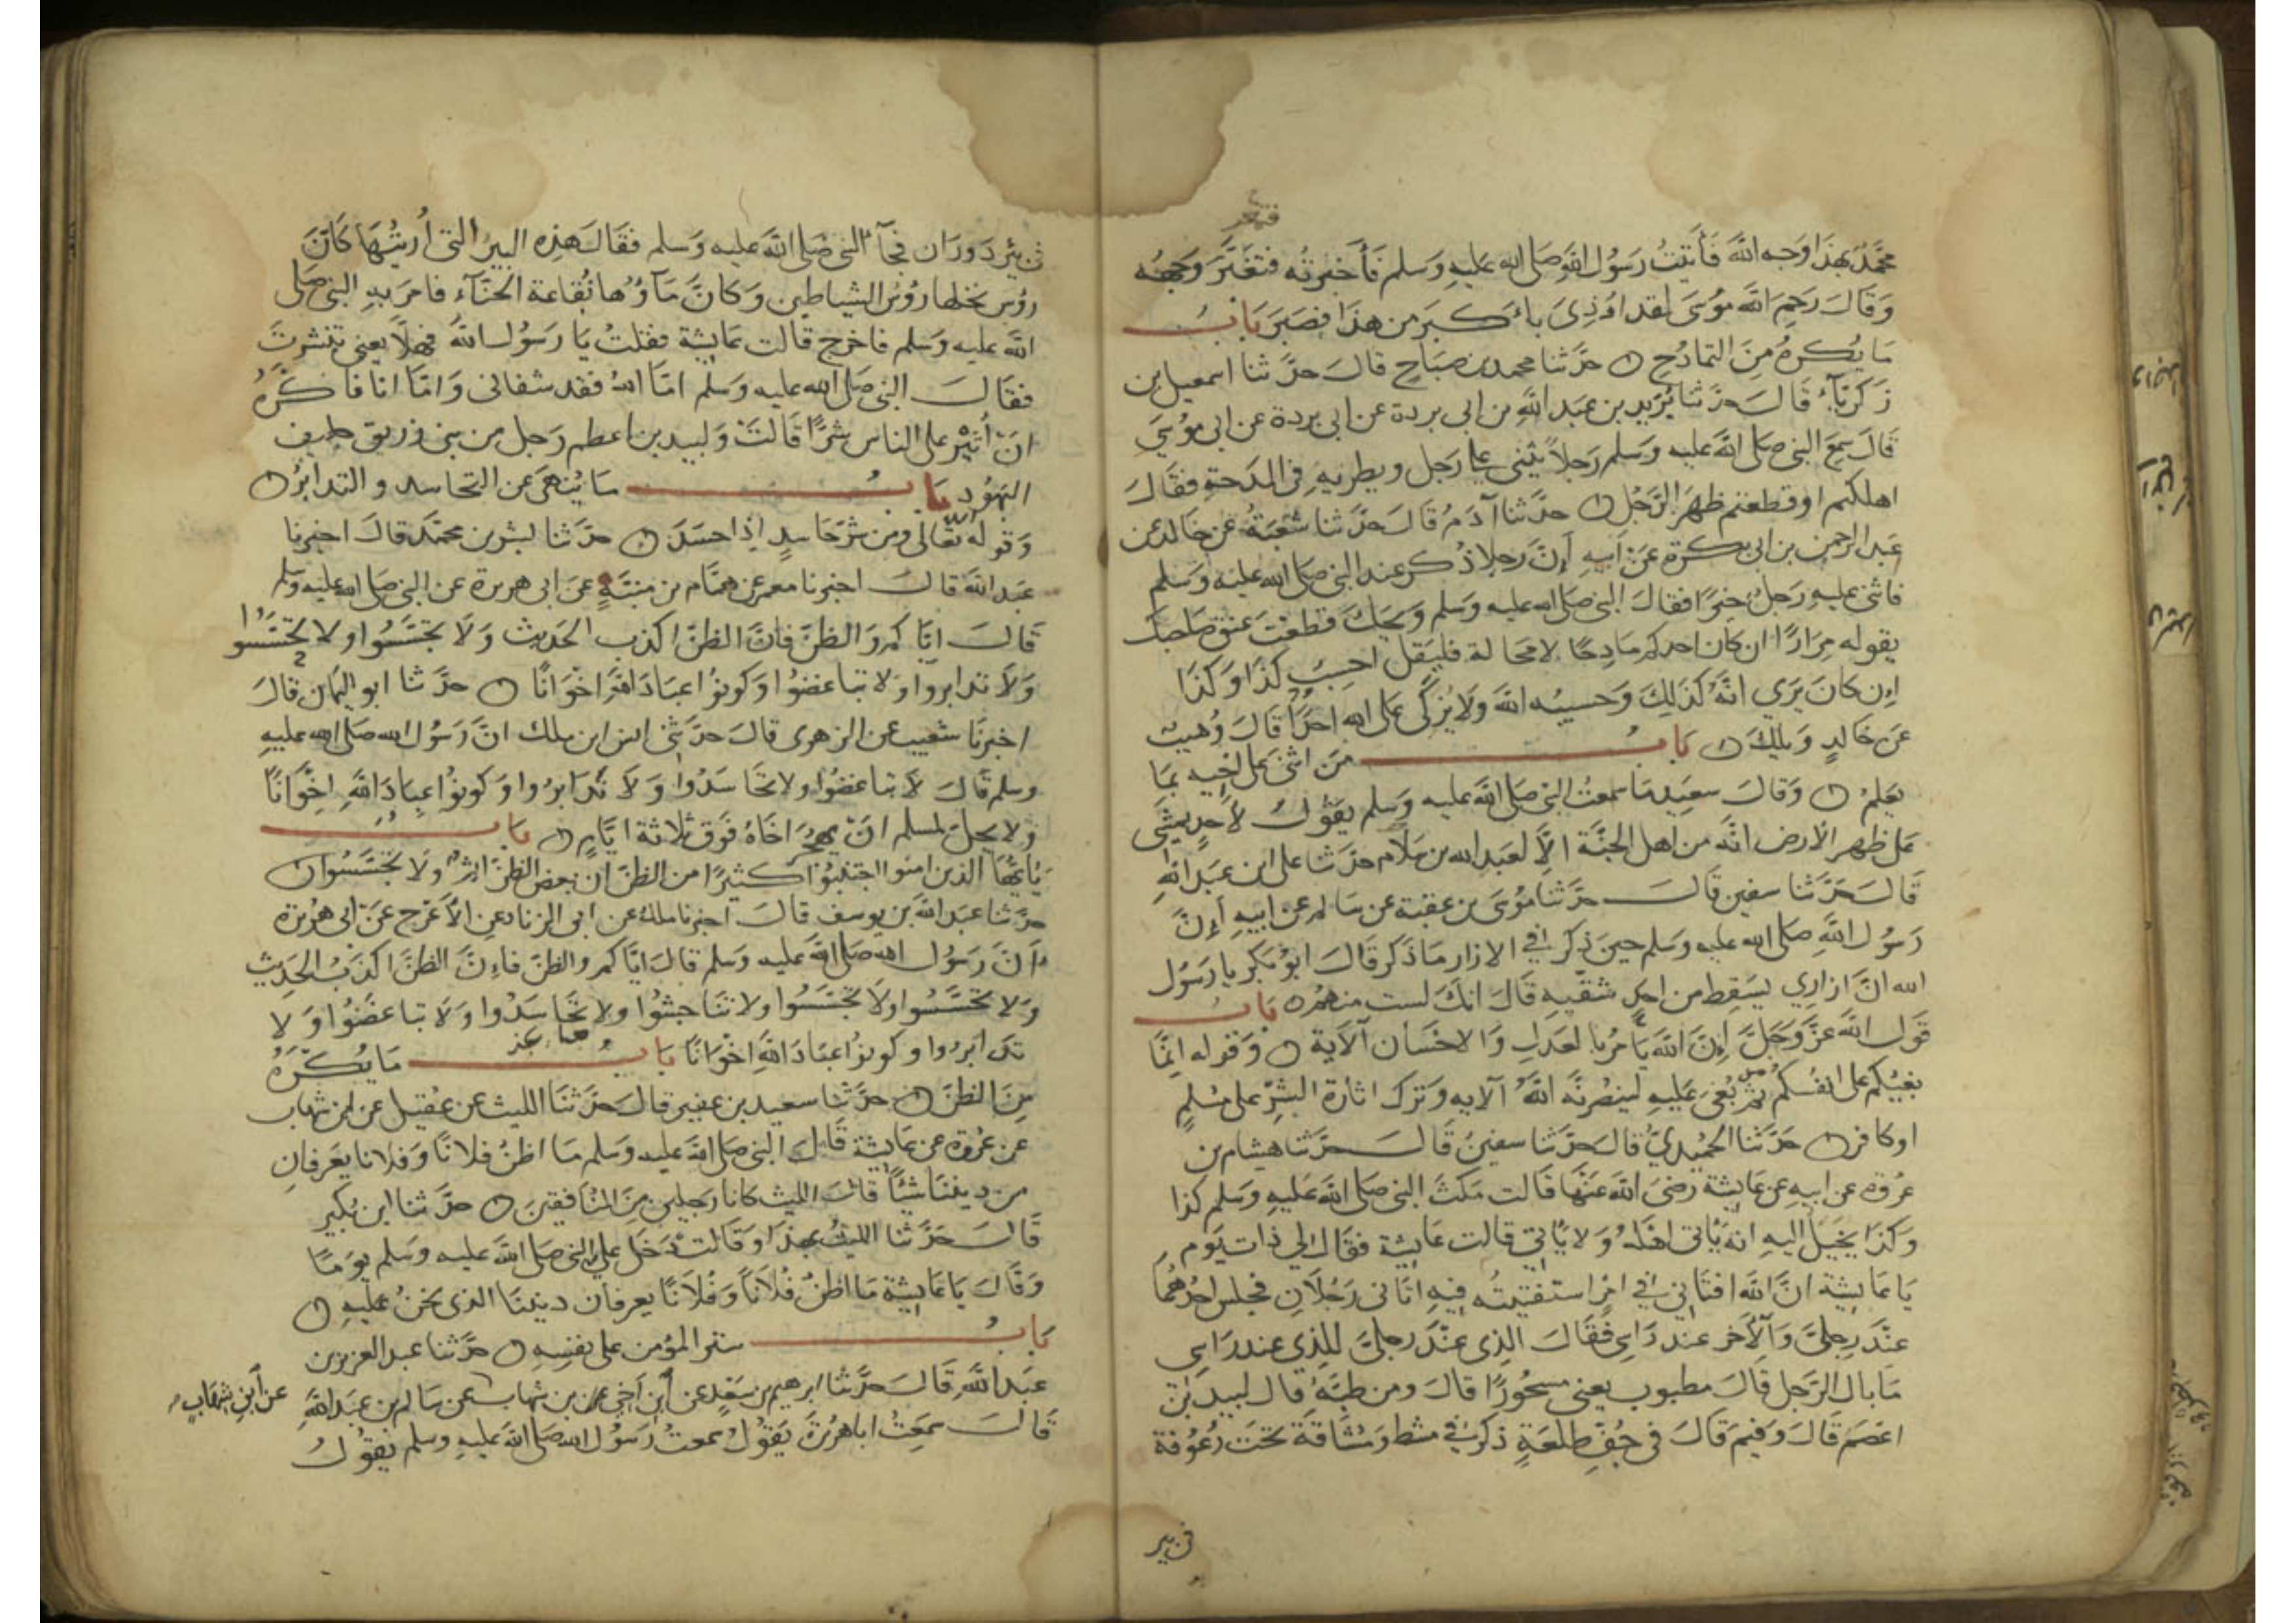 فتمعر
محمد بهذا وجه الله فأتيت رسول الله صلى الله عليه وسلم فأخبرته فتغير وجهه
وقال رحم الله موسى لقد اوذي باكبر من هذا فصبر باب
ما يكره من التمادح حدثنا محمد بن صباح قال حدثنا اسمعيل بن
زكرياء قال حدثنا بريد بن عبد الله بن ابى بردة عن ابى بردة عن ابى موسي
قال سمع النبى صلى الله عليه وسلم رجلا يثنى على رجل ويطريه فى المدحة فقال
اهلكتم او قطعتم ظهر الرجل حدثنا آدم قال حدثنا شعبة عن خالد عن
عبد الرحمن بن ابى بكرة عن ابيه ان رجلا ذكر عند النبى صلى الله عليه وسلم
فاثنى عليه رجل خيرا فقال النبى صلى الله عليه وسلم ويحك قطعت عنق صاحبك
يقوله مرارا ان كان احدكم مادحا لا محالة فليقل احسب كذا وكذا
ان كان يرى انه كذلك وحسيبه الله ولا يزكى على الله احدا قال وهيب
عن خالد ويلك باب من اثنى على اخيه بما
يعلم وقال سعد ما سمعت النبى صلى الله عليه وسلم يقول لاحد يمشى
على ظهر الارض انه من اهل الجنة الا لعبد الله بن سلام حدثنا على ابن عبد الله
قال حدثنا سفين قال حدثنا موسى بن عقبة عن سالم عن ابيه ان
رسول الله صلى الله عليه وسلم حين ذكر في الازار ما ذكر قال ابو بكر يا رسول
الله ان ازاري يسقط من احد شقيه قال انك لست منهم باب
قول الله عز وجل ان الله يامر بالعدل والاحسان الآية وقوله انما
بغيكم على انفسكم ثم بغى عليه لينصرنه الله الآيه وترك اثارة الشر على مسلم
او كافر حدثنا الحميدي قال حدثنا سفين قال حدثنا هشام بن
عروة عن ابيه عن عايشة رضى الله عنها قالت مكث النبى صلى الله عليه وسلم كذا
وكذا يخيل اليه انه ياتى اهله ولا ياتي قالت عايشة فقال لي ذات يوم
يا عايشة ان الله افتاني في امر استفتيته فيه اتانى رجلان فجلس احدهما
عند رجلى والآخر عند راسى فقال الذى عند رجلى للذي عند راسي
ما بال الرجل قال مطبوب يعنى مسحورا قال ومن طبه قال لبيد بن
اعصم قال وفيم قال فى جف طلعة ذكر في مشط ومشاقة تحت رعوفة
فى بير
فى بئر ذوران فجاء النبى صلى الله عليه وسلم فقال هذه البير التى أريتها كان
رؤس نخلها رؤس الشياطين وكان ماؤها نقاعة الحناء فامر به النبى صلى
الله عليه وسلم فاخرج قالت عايشة فقلت يا رسول الله فهلا يعنى تنشرت
فقال النبى صلى الله عليه وسلم اما الله فقد شفانى واما انا فاكره
ان أثير على الناس شرا قالت ولبيد بن اعصم رجل من بنى زريق حليف
اليهود باب ما ينهى عن التحاسد والتدابر
وقوله تعالى ومن شر حاسد إذا حسد حدثنا بشر بن محمد قال اخبرنا
عبد الله قال اخبرنا معمر عن همام بن منبه عن ابى هريرة عن النبى صلى الله عليه وسلم
قال اياكم والظن فان الظن اكذب الحديث ولا تجسسوا ولا تحسسوا
ولا تدابروا ولا تباغضوا وكونوا عباد الله اخوانا حدثنا ابو اليمان قال
اخبرنا شعيب عن الزهرى قال حدثنى انس ابن ملك ان رسول الله صلى الله عليه
وسلم قال لا تباغضوا ولا تحاسدوا ولا تدابروا وكونوا عباد الله اخوانا
ولا يحل لمسلم ان يهجر اخاه فوق ثلاثة ايام باب
يايها الذين امنوا اجتنبوا كثيرا من الظن ان بعض الظن اثم ولا تجسسوا
حدثنا عبد الله بن يوسف قال اخبرنا ملك عن ابى الزناد عن الاعرج عن ابى هريرة
ان رسول الله صلى الله عليه وسلم قال اياكم والظن فان الظن اكذب الحديث
ولا تحسسوا ولا تجسسوا ولا تناجشوا ولا تحاسدوا ولا تباغضوا ولا
تدابروا وكونوا عباد الله اخوانا باب ما يكره
من الظن حدثنا سعيد بن عفير قال حدثنا الليث عن عقيل عن ابن شهاب
عن عروة عن عايشة قال النبى صلى الله عليه وسلم ما اظن فلانا وفلانا يعرفان
من ديننا شيئا قال الليث كانا رجلين من المنافقين حدثنا ابن بكير
قال حدثنا الليث بهذا وقالت دخل على النبى صلى الله عليه وسلم يوما
وقال يا عايشة ما اظن فلانا وفلانا يعرفان ديننا الذى نحن عليه
باب ستر المؤمن على نفسه حدثنا عبد العزيز بن
عبد الله قال حدثنا ابرهيم بن سعد عن ابن اخى ابن شهاب عن سالم بن عبد الله
عن ابن شهاب
قال سمعت ابا هريرة يقول سمعت رسول الله صلى الله عليه وسلم يقول